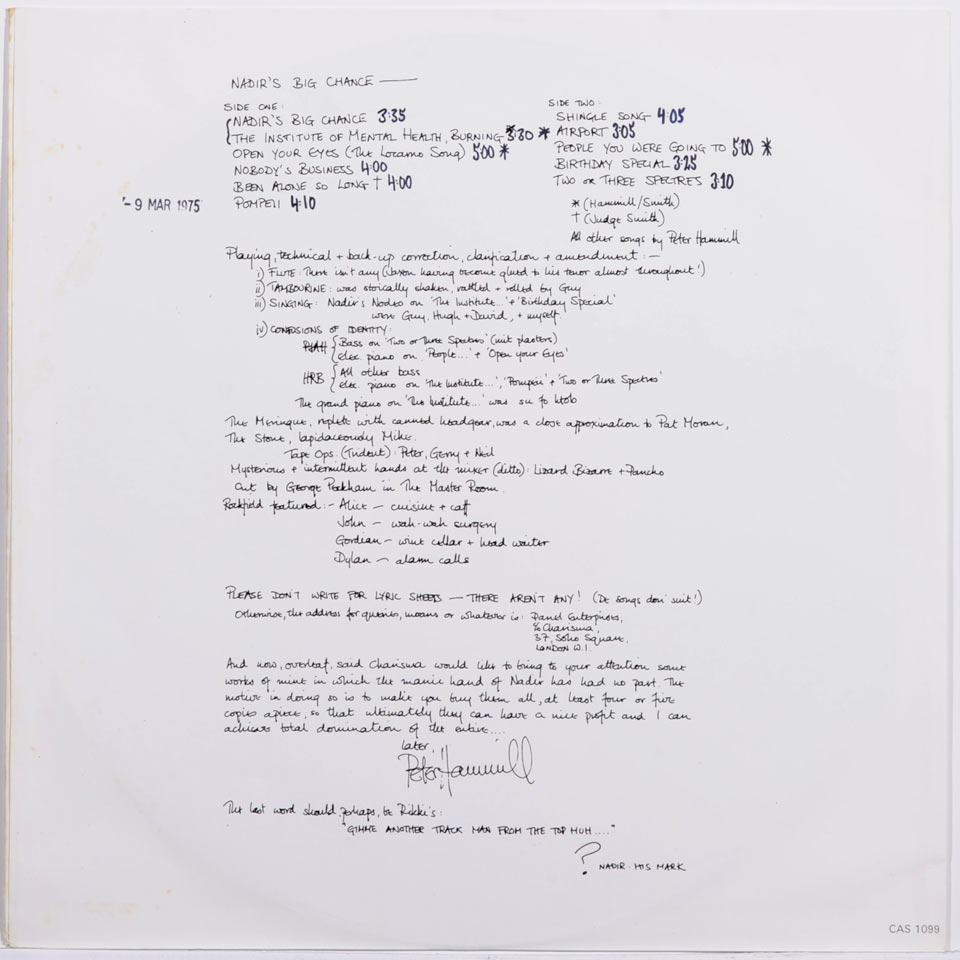 NADIR'S BIG CHANCE —
SIDE ONE:
NADIR'S BIG CHANCE 3:35
THE INSTITUTE OF MENTAL HEALTH, BURNING 3:30 *
OPEN YOUR EYES (The Locarno Song) 5:00 *
NOBODY'S BUSINESS 4:00
BEEN ALONE SO LONG † 4:00
POMPEII 4:10
SIDE TWO:
SHINGLE SONG 4:05
AIRPORT 3:05
PEOPLE YOU WERE GOING TO 5:00 *
BIRTHDAY SPECIAL 3:25
TWO or THREE SPECTRES 3:10
* (Hammill/Smith)
† (Judge Smith)
All other songs by Peter Hammill
-9 MAR 1975
Playing, technical + back-up correction, clarification + amendment:—
i) FLUTE: There isn't any (Jaxon having become glued to his tenor almost throughout!)
ii) TAMBOURINE: was stoically shaken, rattled + rolled by Guy
iii) SINGING: Nadir's Nodes on 'The Institute...' + 'Birthday Special'
were Guy, Hugh + David, + myself.
iv) CONFUSIONS OF IDENTITY:
PJAH { Bass on 'Two or Three Spectres' (mit plasters)
elec. piano on 'People...' + 'Open your Eyes'
HRB { All other bass
elec. piano on 'The Institute...', 'Pompeii' + 'Two or Three Spectres'
The grand piano on 'The Institute...' was
The Meringue, replete with canned headgear, was a close approximation to Pat Moran,
The Stone, lapidaceously Mike.
Tape Ops. (Trident): Peter, Gerry + Neil
Mysterious + intermittent hands at the mixer (ditto): Lizard Bizarre + Pancho
Cut by George Peckham in The Master Room.
Rockfield featured:- Alice — cuisine + caff
John — wah-wah surgery
Gordian — wine cellar + head waiter
Dylan — alarm calls
PLEASE DON'T WRITE FOR LYRIC SHEETS — THERE AREN'T ANY! (De songs don' suit!)
Otherwise, the address for queries, moans or whatever is: Enterprises,
c/o Charisma,
37, Soho Square,
LONDON W.1.
And now, overleaf, said Charisma would like to bring to your attention some
works of mine in which the manic hand of Nadir has had no part. The
motive in doing so is to make you buy them all, at least four or five
copies apiece, so that ultimately they can have a nice profit and I can
achieve total domination of the entire....
later,
Peter Hammill
The last word should, perhaps, be Rikki's:
"GIMME ANOTHER TRACK MAN FROM THE TOP HUH...."
? NADIR - HIS MARK
CAS 1099